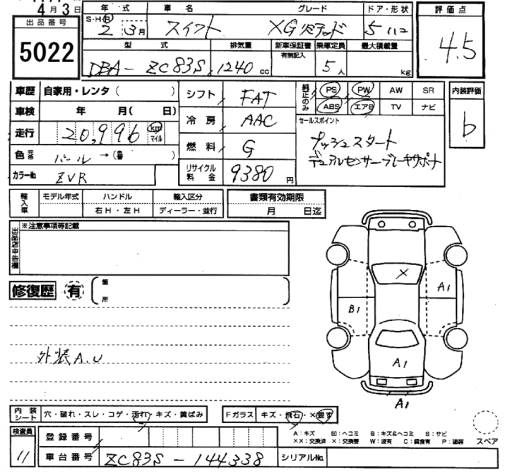 4月3日
出品番号
5022
年式 車名 グレード ドア・形状
S・H・R 2年 3月 スイフト XGリミテッド 5 ハコ
評価点
4.5
型式 排気量 新車保証書 乗車定員 最大積載量
有無記入
DBA-ZC83S 1240 cc 5人 kg
車歴 自家用・レンタ( )
車検 年 月( 日)
走行 20,996 km マイル
色
カラー番号 ZVR
シフト FAT
冷房 AAC
燃料 G
リサイクル料金 9380円
PS PW AW SR
ABS エアB TV ナビ
内装評価
b
セールスポイント
プッシュスタート
デュアルセンサーブレーキサポート
輸入車
モデル年式 ハンドル 輸入区分
右H・左H ディーラー・並行
書類有効期限
月 日迄
※注意事項等記載
修復歴 有
箇所
外装A.U
X
B1
A1
A1
A1
内装シート 穴・破れ・スレ・コゲ・汚れ・キズ・黄ばみ
Fガラス キズ・飛石・×
A:キズ B:ヘコミ B:キズ&ヘコミ S:サビ
XX:交換済 X:交換要 W:波有 C:腐食有 P:塗装
スペア
検査員
11
登録番号
車台番号 ZC83S-144338 シリアルNo.